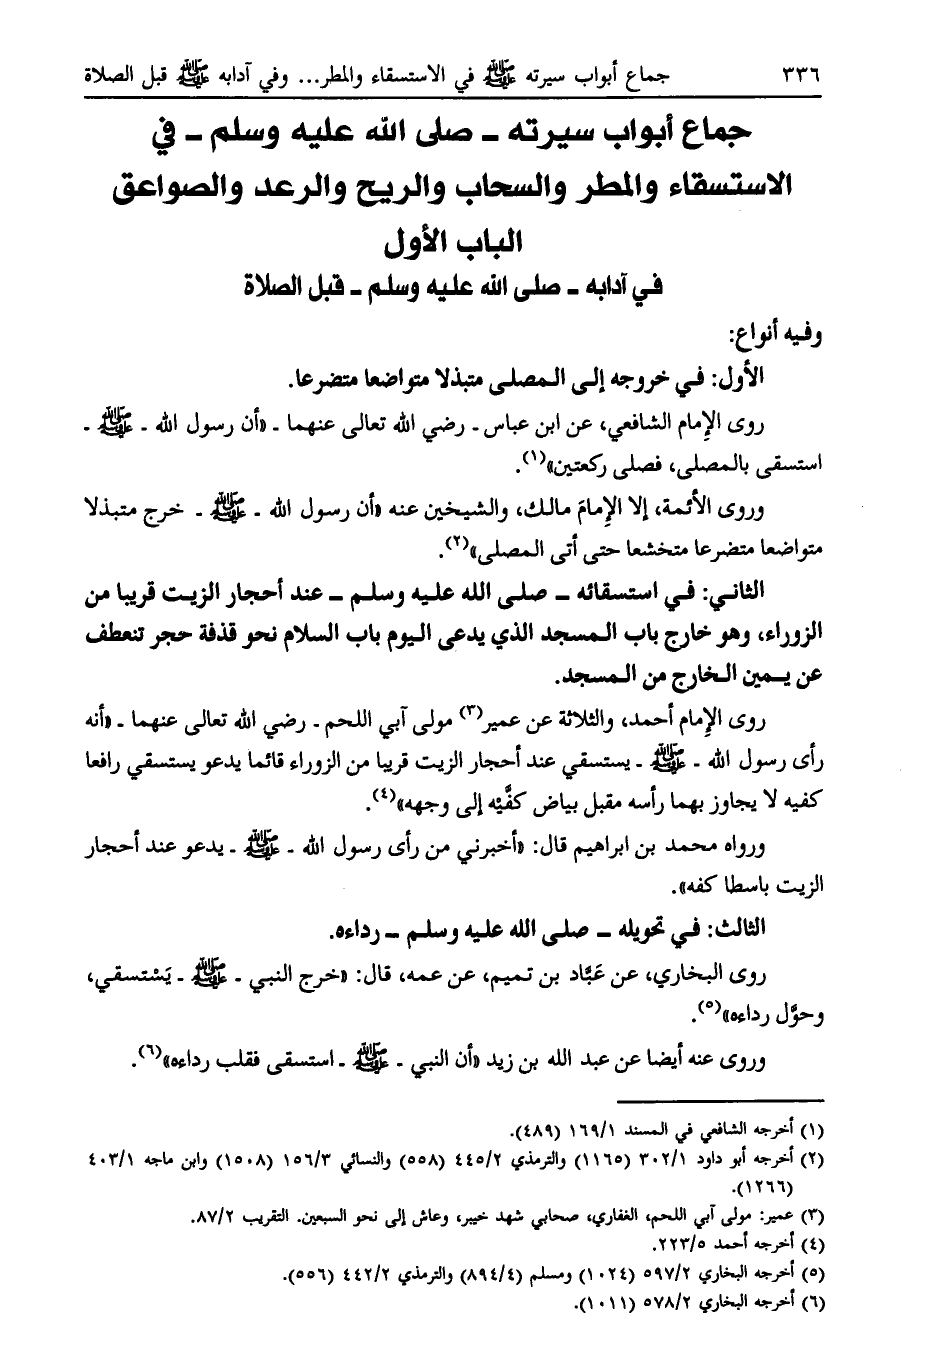 ٣٣٦ جماع أبواب سيرته ﷺ في الاستسقاء والمطر... وفي آدابه ﷺ قبل الصلاة
جماع أبواب سيرته ـ صلى الله عليه وسلم ـ في
الاستسقاء والمطر والسحاب والريح والرعد والصواعق
الباب الأول
في آدابه ـ صلى الله عليه وسلم ـ قبل الصلاة
وفيه أنواع:
الأول: في خروجه إلى المصلى متبذلا متواضعا متضرعا.
روى الإمام الشافعي، عن ابن عباس ـ رضي الله تعالى عنهما ـ «أن رسول الله ـ ﷺ ـ
استسقى بالمصلى، فصلى ركعتين»(١).
وروى الأئمة، إلا الإمامَ مالك، والشيخين عنه «أن رسول الله ـ ﷺ ـ خرج متبذلا
متواضعا متضرعا متخشعا حتى أتى المصلى»(٢).
الثاني: في استسقائه ـ صلى الله عليه وسلم ـ عند أحجار الزيت قريبا من
الزوراء، وهو خارج باب المسجد الذي يدعى اليوم باب السلام نحو قذفة حجر تنعطف
عن يمين الخارج من المسجد.
روى الإمام أحمد، والثلاثة عن عمير(٣) مولى آبي اللحم ـ رضي الله تعالى عنهما ـ «أنه
رأى رسول الله ـ ﷺ ـ يستسقي عند أحجار الزيت قريبا من الزوراء قائما يدعو يستسقي رافعا
كفيه لا يجاوز بهما رأسه مقبل بياض كفَّيْه إلى وجهه»(٤).
ورواه محمد بن ابراهيم قال: «أخبرني من رأى رسول الله ـ ﷺ ـ يدعو عند أحجار
الزيت باسطا كفه».
الثالث: في تحويله ـ صلى الله عليه وسلم ـ رداءه.
روى البخاري، عن عَبَّاد بن تميم، عن عمه، قال: «خرج النبي ـ ﷺ ـ يَسْتسقي،
وحوَّل رداءه»(٥).
وروى عنه أيضا عن عبد الله بن زيد «أن النبي ـ ﷺ ـ استسقى فقلب رداءه»(٦).
(١) أخرجه الشافعي في المسند ١٦٩/١ (٤٨٩).
(٢) أخرجه أبو داود ٣٠٢/١ (١١٦٥) والترمذي ٤٤٥/٢ (٥٥٨) والنسائي ١٥٦/٣ (١٥٠٨) وابن ماجه ٤٠٣/١
(١٢٦٦).
(٣) عمير: مولى آبي اللحم، الغفاري، صحابي شهد خيبر، وعاش إلى نحو السبعين. التقريب ٨٧/٢.
(٤) أخرجه أحمد ٢٢٣/٥.
(٥) أخرجه البخاري ٥٩٧/٢ (١٠٢٤) ومسلم (٨٩٤/٤) والترمذي ٤٤٢/٢ (٥٥٦).
(٦) أخرجه البخاري ٥٧٨/٢ (١٠١١).